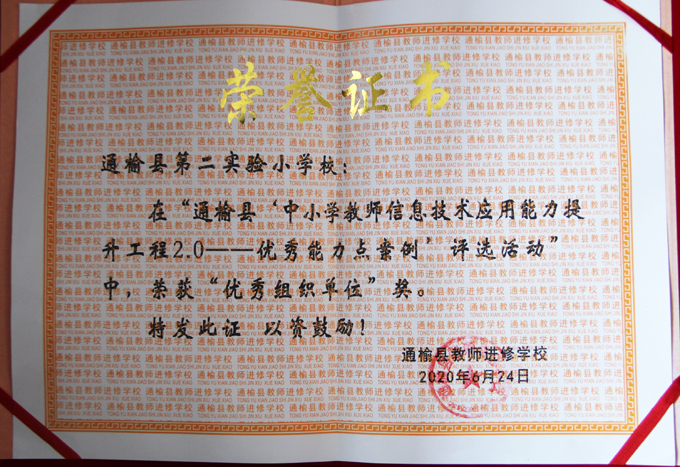 荣誉证书
通榆县第二实验小学校：
在“通榆县‘中小学教师信息技术应用能力提
升工程2.0——优秀能力点案例’评选活动”
中，荣获“优秀组织单位”奖。
特发此证 以资鼓励！
通榆县教师进修学校
2020年6月24日